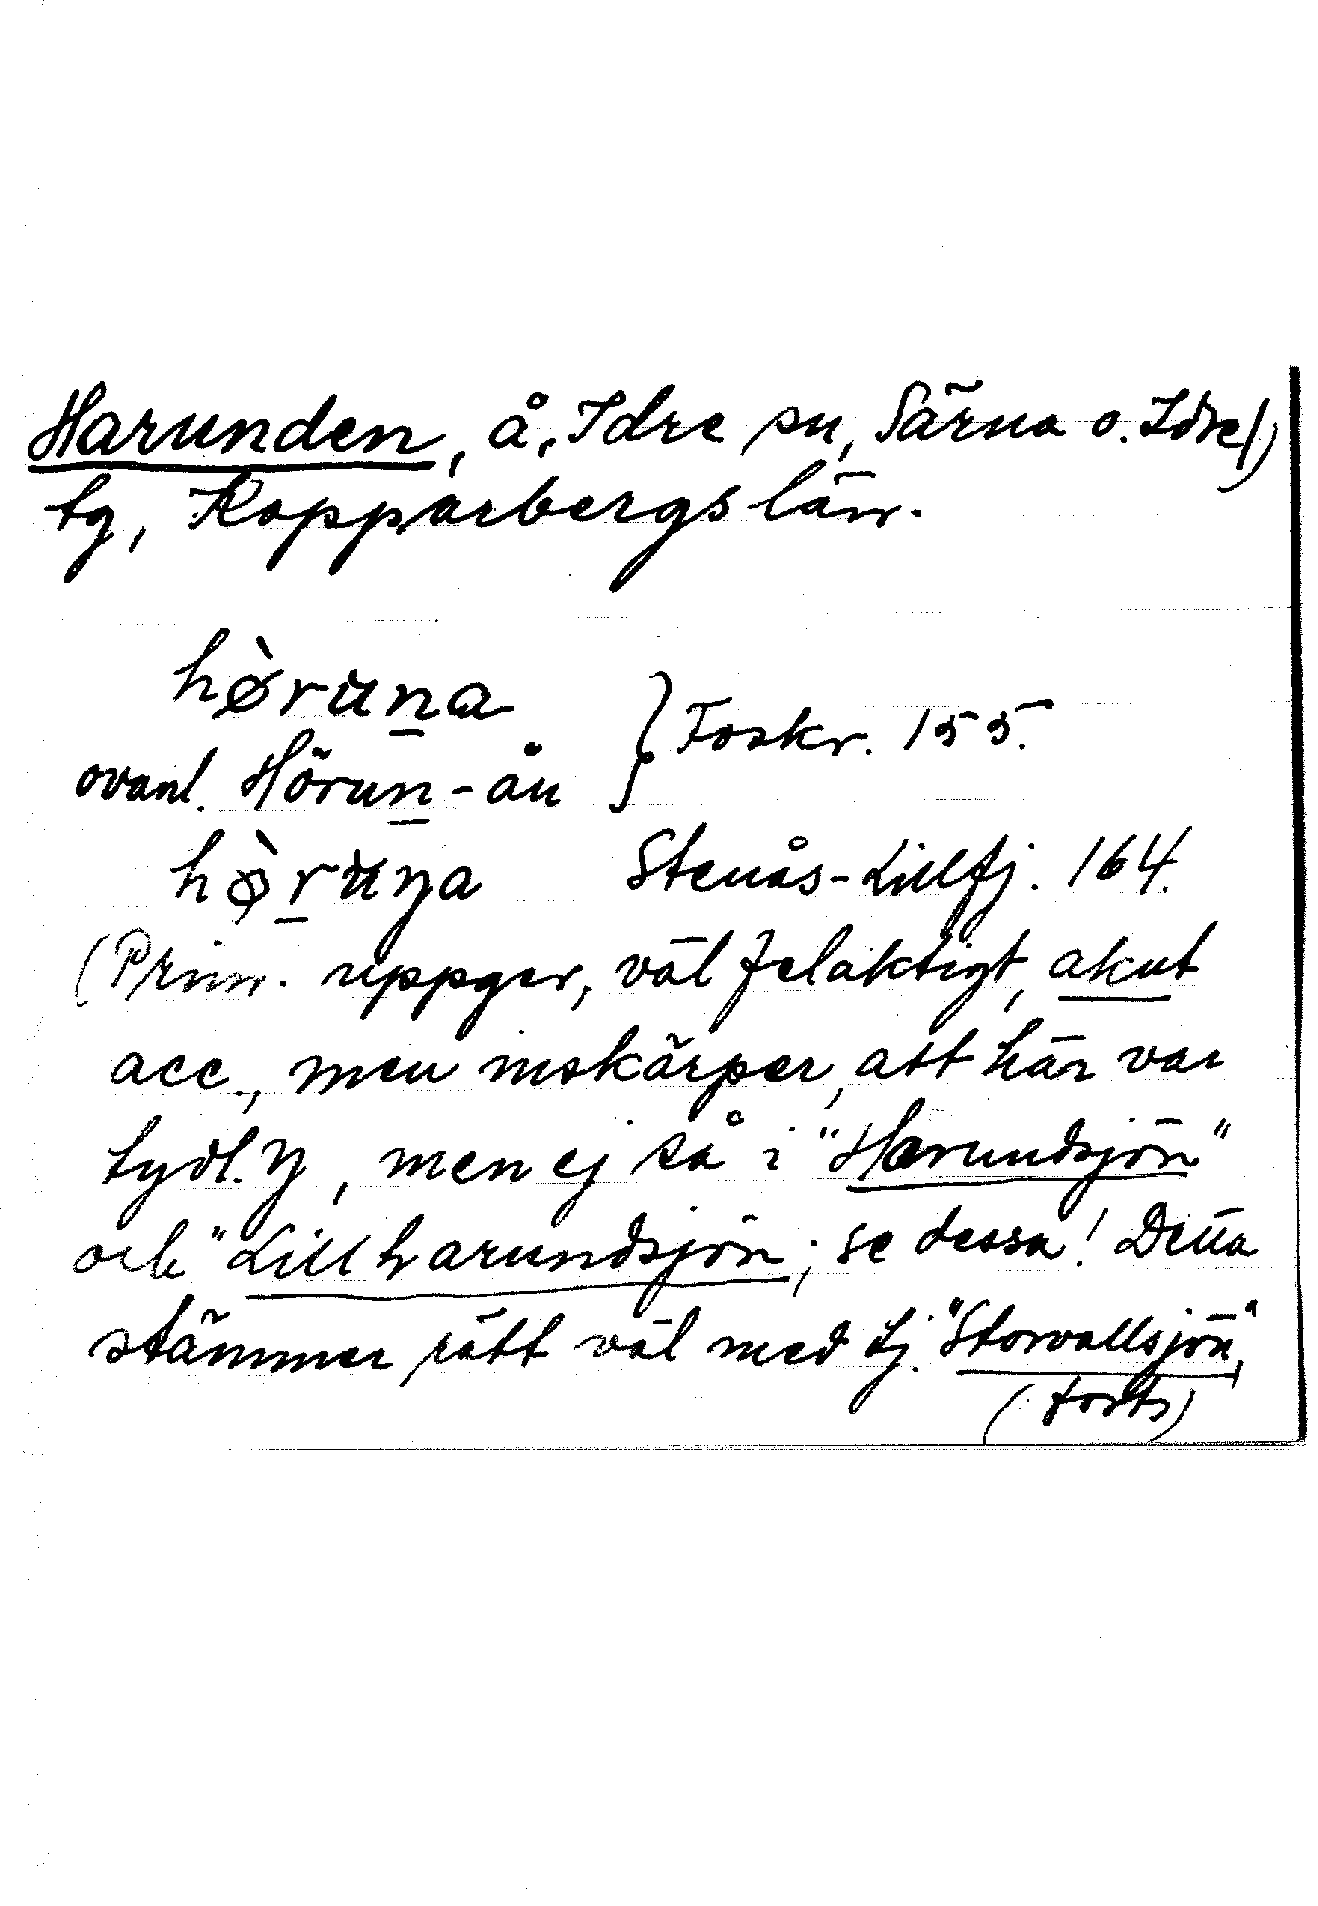 Harunden, å, Idre sn, Särna o. Idre
tg, Kopparbergs län.
hø̀runa
ovanl. Hörun-ån } Foskr. 155.
hø̀ruŋa Stenås-Lillfj. 164.
(Prim. uppger, väl felaktigt, akut
acc., men inskärper, att här var
tydl. ŋ, men ej så i "Harundsjön"
och "Lillharundsjön; se dessa! Detta
stämmer rätt väl med tj. "Storvallsjön",
(forts)